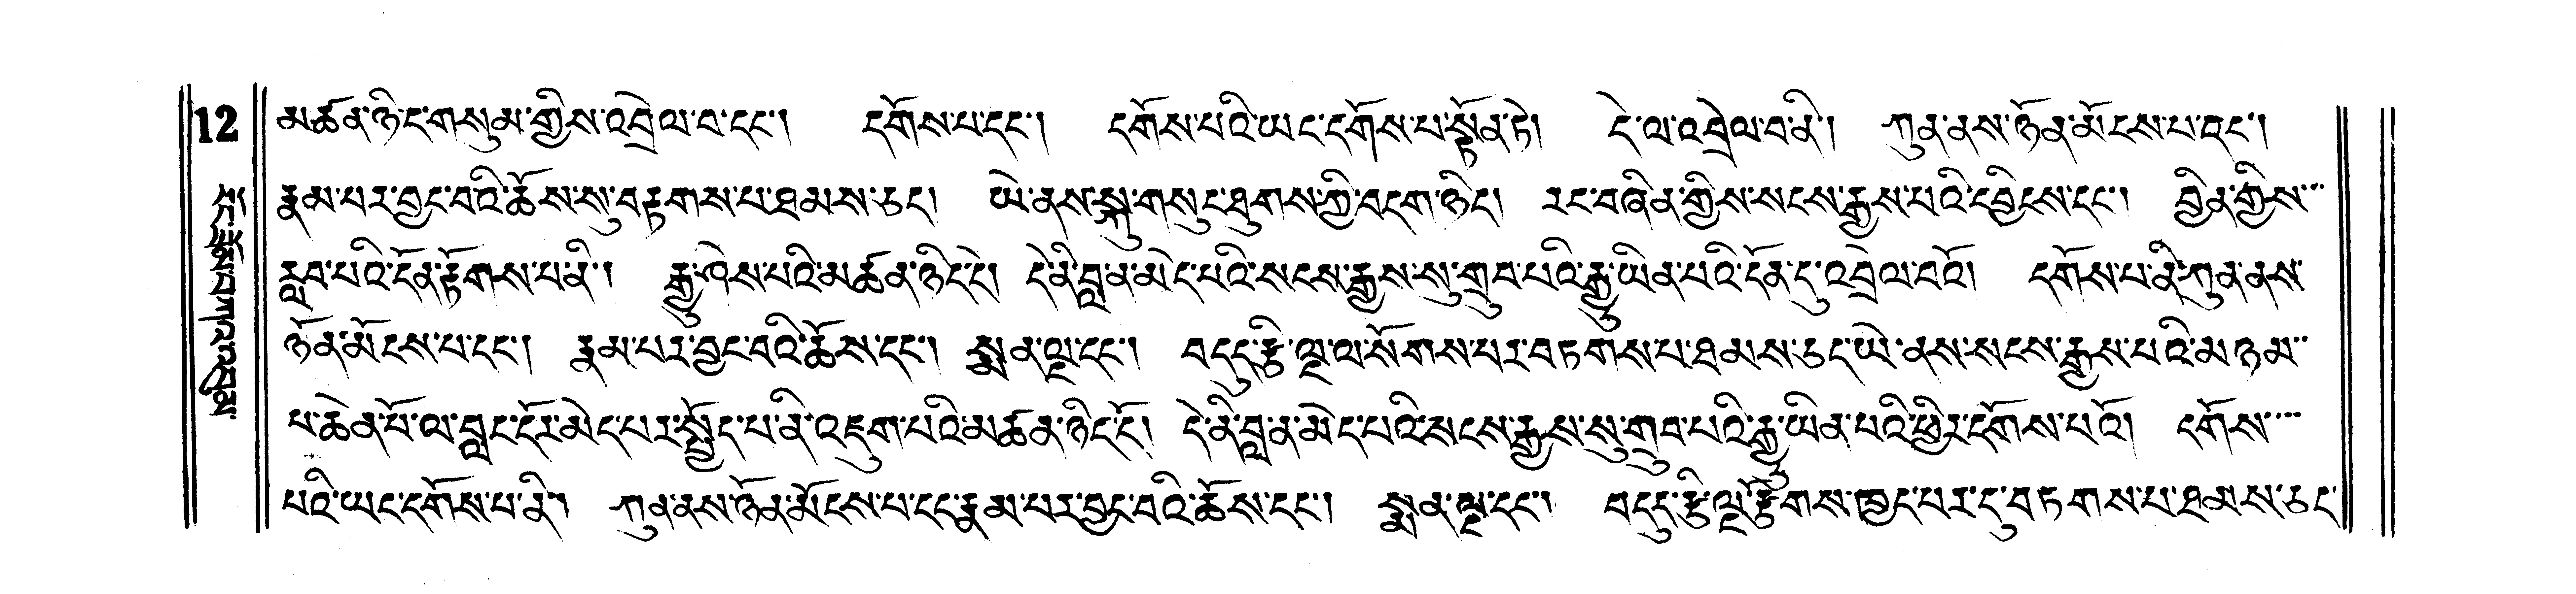 12
མཚན་ཉིད་གསུམ་གྱིས་འབྲེལ་བ་དང་། དགོས་པ་དང་། དགོས་པའི་ཡང་དགོས་པ་སྟོན་ཏེ། དེ་ལ་འབྲེལ་བ་ནི། ཀུན་ནས་ཉོན་མོངས་པ་དང་།
རྣམ་པར་བྱང་བའི་ཆོས་སུ་བརྟགས་པ་ཐམས་ཅད། ཡེ་ནས་སྐུ་གསུང་ཐུགས་ཀྱི་བདག་ཉིད། རང་བཞིན་གྱིས་སངས་རྒྱས་པའི་དབྱིངས་དང་། བྱིན་གྱིས་
རླབ་པའི་དོན་རྟོགས་པ་ནི། རྒྱུ་ཤེས་པའི་མཚན་ཉིད་དེ། དེ་ནི་བླ་ན་མེད་པའི་སངས་རྒྱས་སུ་གྲུབ་པའི་རྒྱུ་ཡིན་པའི་དོན་དུ་འབྲེལ་བའོ། དགོས་པ་ནི་ཀུན་ནས་
ཉོན་མོངས་པ་དང་། རྣམ་པར་བྱང་བའི་ཆོས་དང་། སྨན་ལྔ་དང་། བདུད་རྩི་ལྔ་ལ་སོགས་པར་བཏགས་པ་ཐམས་ཅད་ཡེ་ནས་སངས་རྒྱས་པའི་མཉམ་
པ་ཆེན་པོ་ལ་བླང་དོར་མེད་པར་སྤྱོད་པ་ནི་འཇུག་པའི་མཚན་ཉིད་དོ། དེ་ནི་བླ་ན་མེད་པའི་སངས་རྒྱས་སུ་གྲུབ་པའི་རྒྱུ་ཡིན་པའི་ཕྱིར་དགོས་པའོ། དགོས་
པའི་ཡང་དགོས་པ་ནི། ཀུན་ནས་ཉོན་མོངས་པ་དང་རྣམ་པར་བྱང་བའི་ཆོས་དང་། སྨན་ལྔ་དང་། བདུད་རྩི་ལྔ་རྫོགས་ཁྱད་པར་དུ་བཏགས་པ་ཐམས་ཅད་